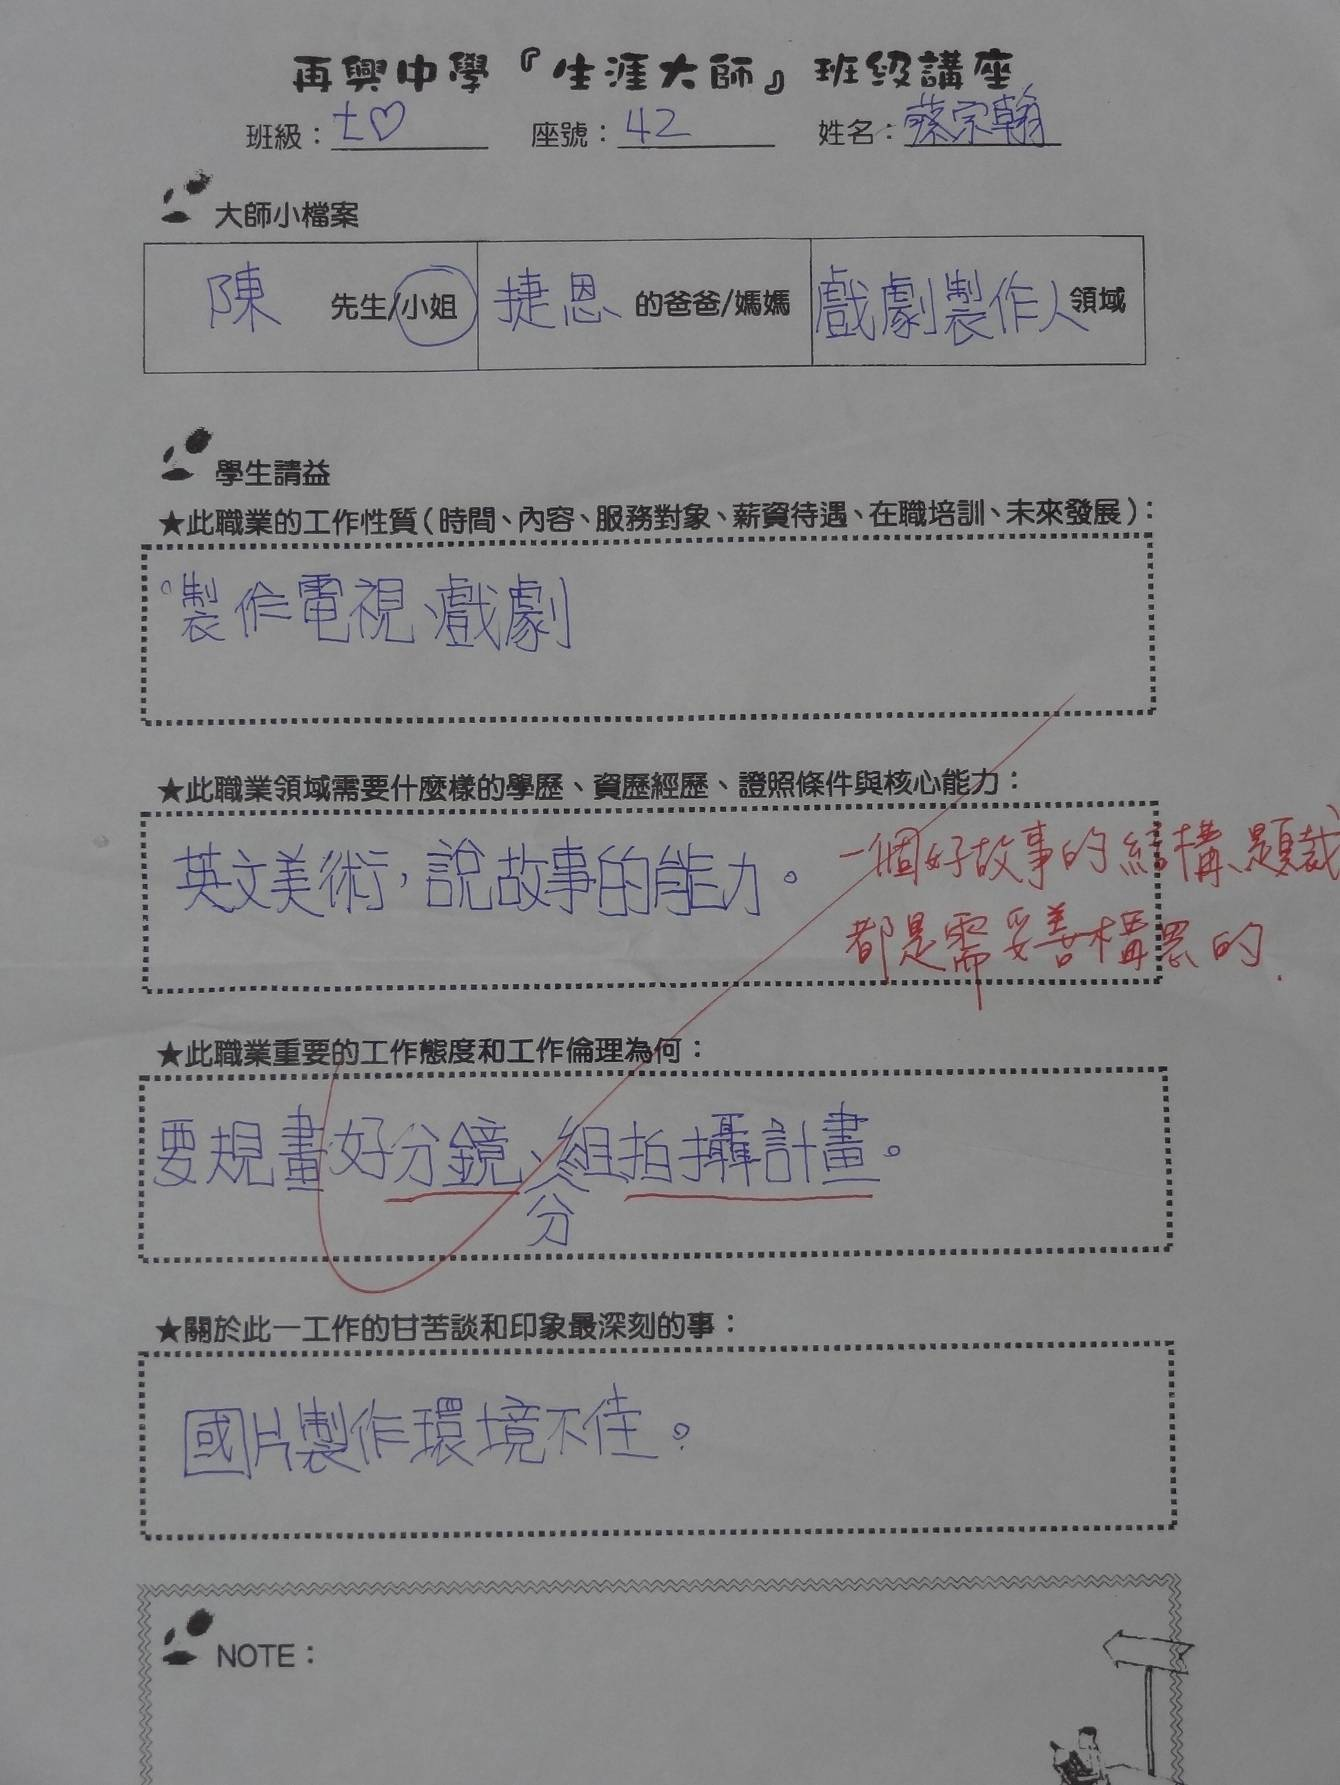 再興中學『生涯大師』班級講座
班級：七♡ 座號：42 姓名：蔡宗翰
大師小檔案
陳 先生/小姐 捷恩 的爸爸/媽媽 戲劇製作人 領域
學生請益
★此職業的工作性質(時間、內容、服務對象、薪資待遇、在職培訓、未來發展)：
。製作電視、戲劇
★此職業領域需要什麼樣的學歷、資歷經歷、證照條件與核心能力：
英文美術，說故事的能力。
一個好故事的結構、題裁
都是需妥善構思的.
★此職業重要的工作態度和工作倫理為何：
要規畫好分鏡、分組拍攝計畫。
★關於此一工作的甘苦談和印象最深刻的事：
國片製作環境不佳。
NOTE：